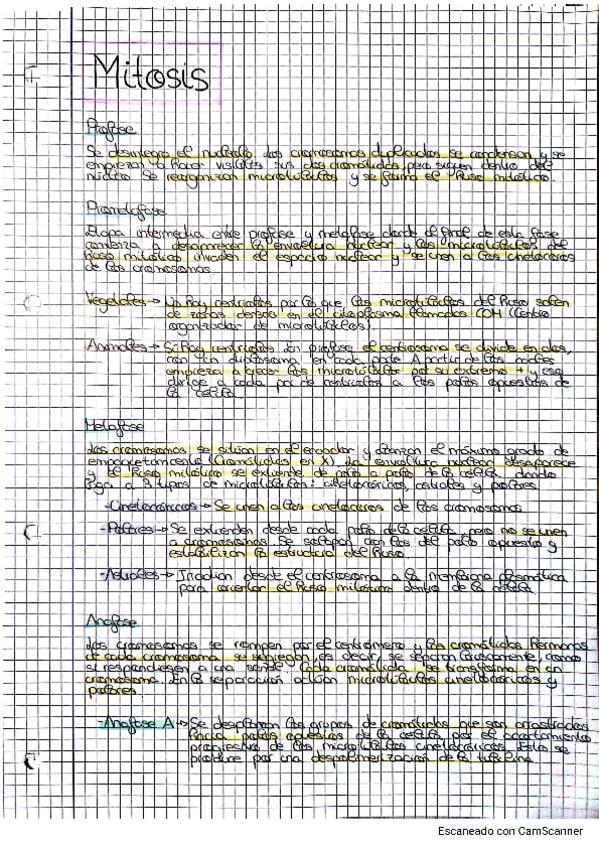 Mitosis
Profase
Se desintegra el nucleolo. Los cromosomas duplicados se condensan y se
empieza a hacer visibles sus dos cromátidas pero siguen dentro del
núcleo. Se reorganizan microtúbulos y se forma el huso mitótico.
Prometafase
Etapa intermedia entre profase y metafase donde al final de esta fase
comienza a desaparecer la envoltura nuclear y los microtúbulos del
huso mitótico invaden el espacio nuclear y se unen a los cinetocoros
de los cromosomas.
Vegetales → No hay centriolos por lo que los microtúbulos del huso salen
de zonas densas en el citoplasma llamados COM (Centro
organizador de microtúbulos).
Animales → Sí hay centriolos. En profase el centrosoma se divide en dos,
con un diplosoma en cada parte. A partir de los cuales
empieza a crecer los microtúbulos por su extremo + y eso
dirige a cada par de centriolos a los polos opuestos de
la célula.
Metafase
Los cromosomas se sitúan en el ecuador y alcanzan el máximo grado de
empaquetamiento (Cromátidas en X). La envoltura nuclear desaparece
y el huso mitótico se extiende de polo a polo de la célula dando
lugar a 3 tipos de microtúbulos: cinetocóricos, astrales y polares
-Cinetocóricos → Se unen a los cinetocoros de los cromosomas
-Polares → Se extienden desde cada polo de la célula, pero no se unen
a cromosomas. Se solapan con los del polo opuesto y
estabilizan la estructura del huso.
-Astrales → Irradian desde el centrosoma a la membrana plasmática
para orientar el huso mitótico dentro de la célula
Anafase
Los cromosomas se rompen por el centrómero y las cromátidas hermanas
de cada cromosoma se segregan, es decir, se separan bruscamente, como
si respondiesen a una señal. Cada cromátida se transforma en un
cromosoma. En la separación actúan microtúbulos cinetocóricos y
polares.
-Anafase A → Se desplazan los grupos de cromátidas que son arrastradas
hacia polos opuestos de la célula, por el acortamiento
progresivo de los microtúbulos cinetocóricos. Esto se
produce por una despolimerización de la tubulina.
Escaneado con CamScanner